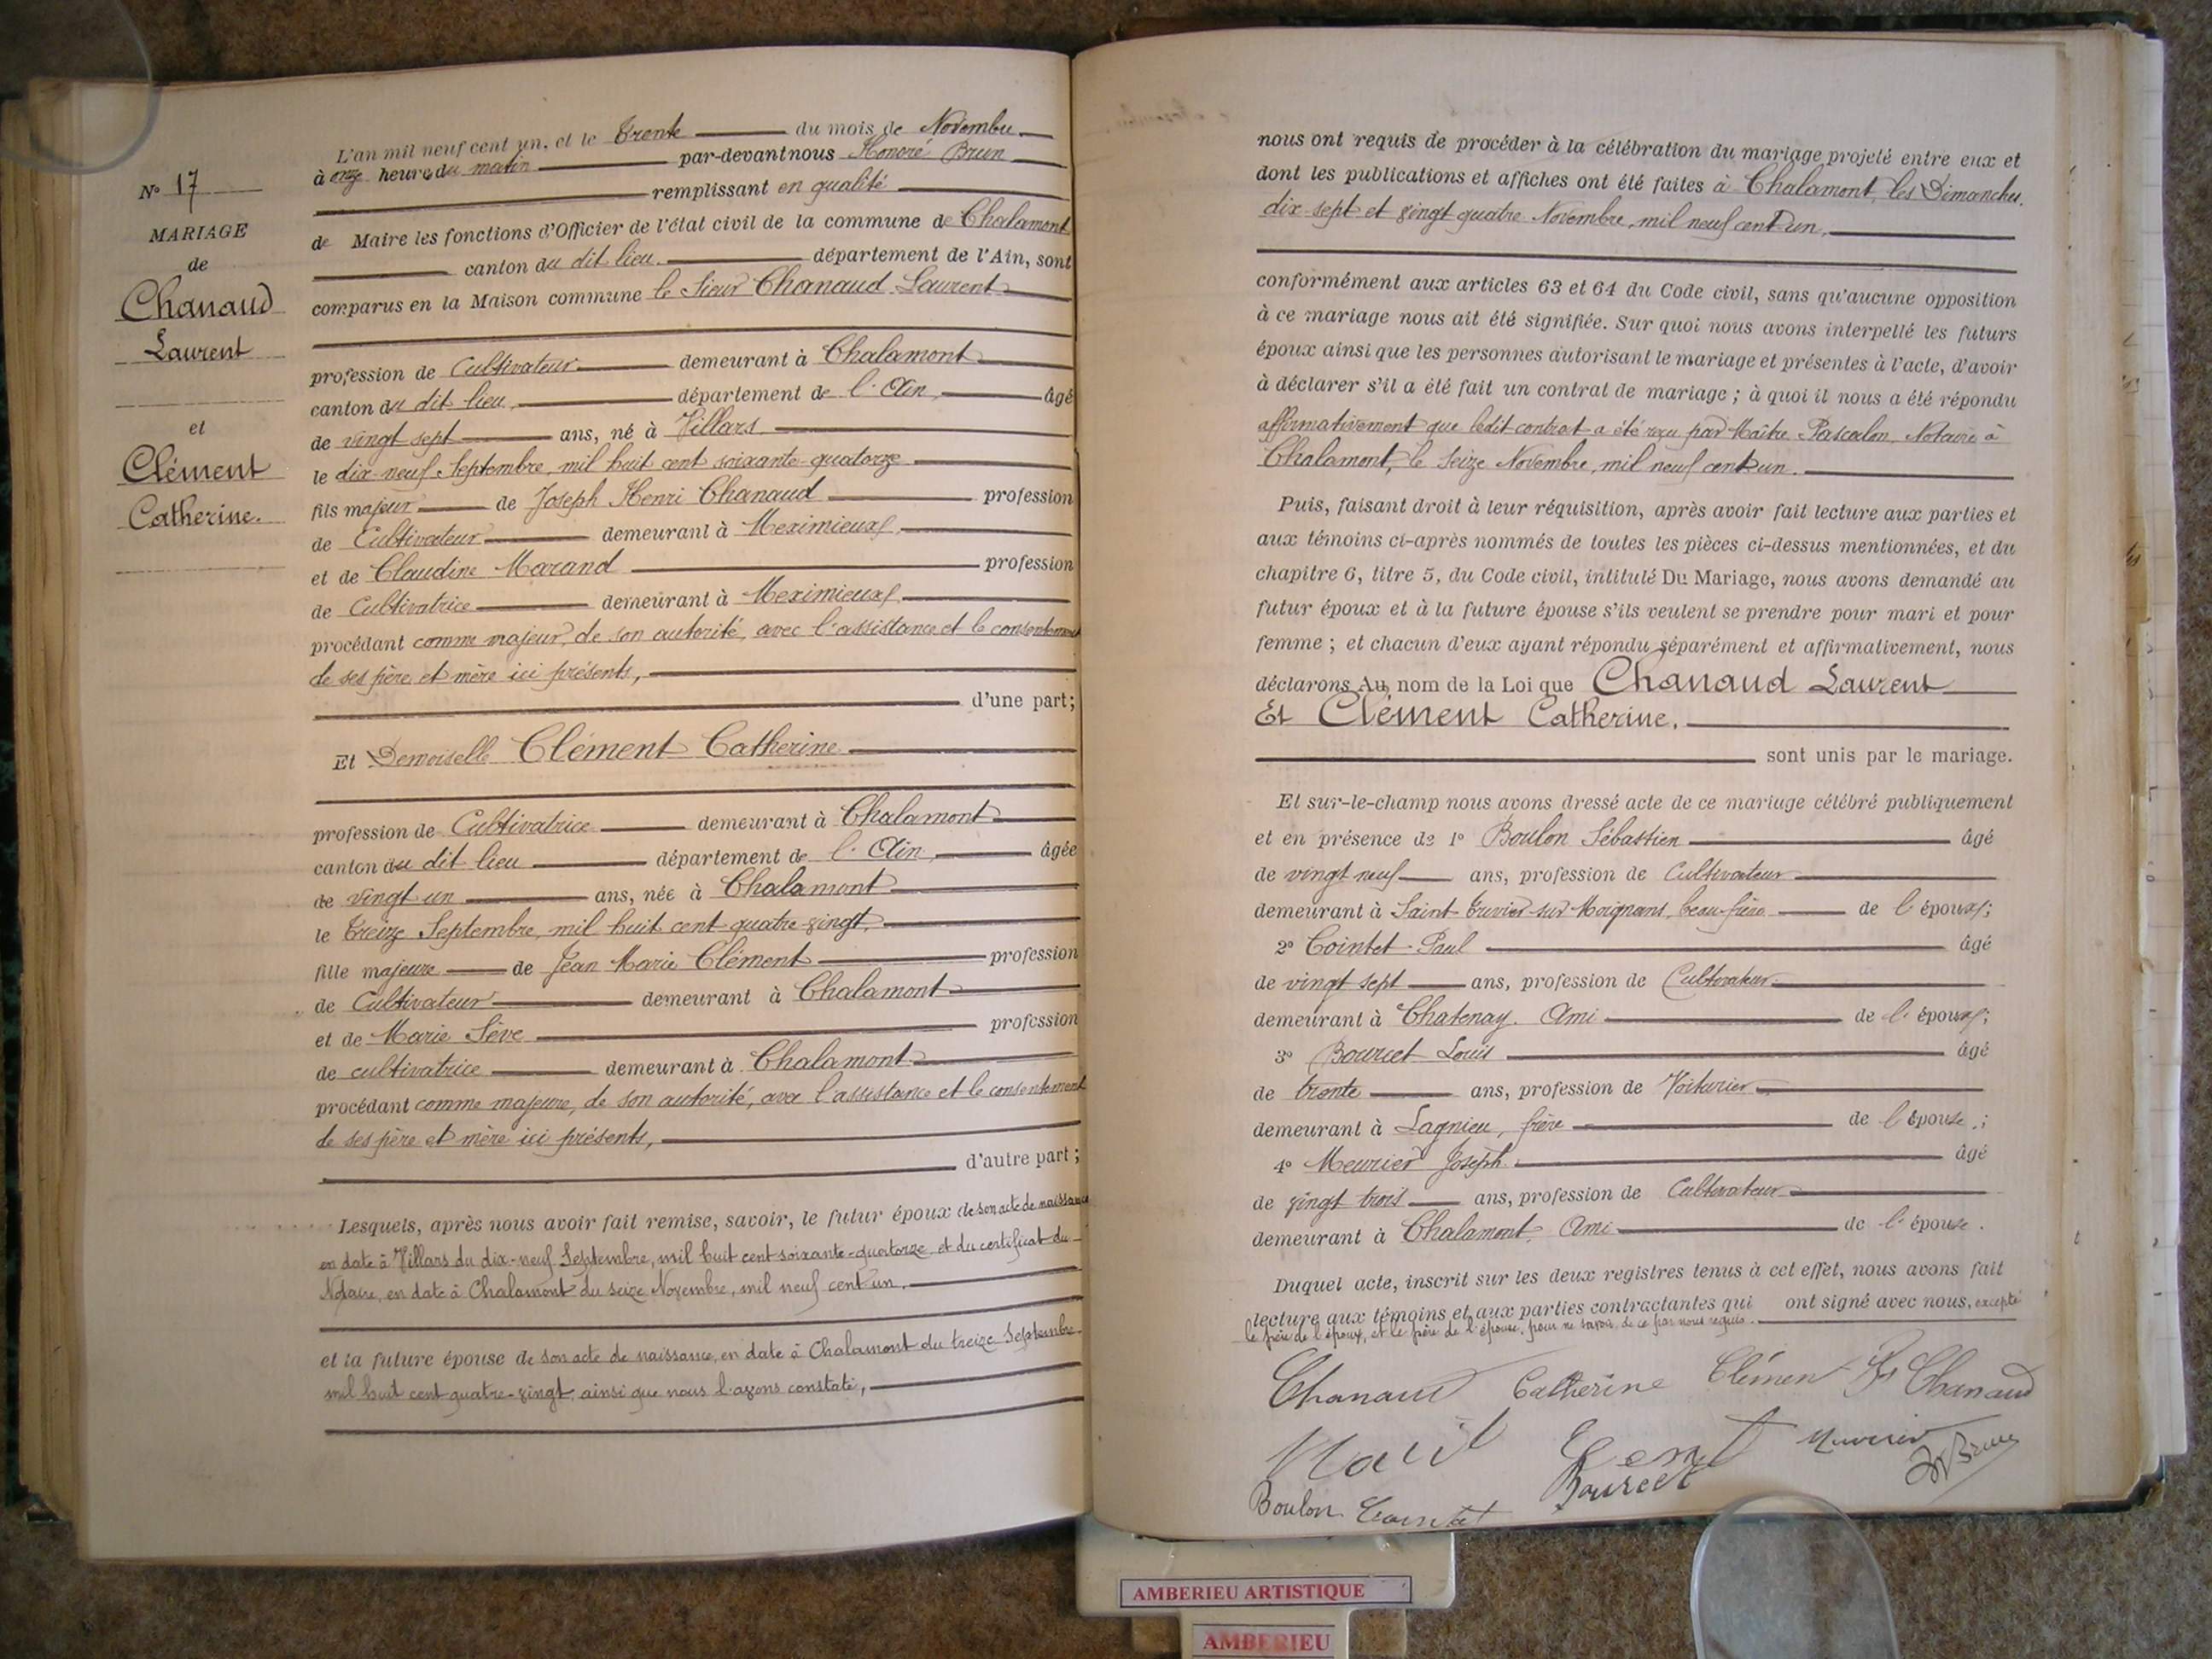 N° 17
MARIAGE
de
Chanaud
Laurent
et
Clément
Catherine.
L'an mil neuf cent un, et le Trente du mois de Novembre
à onze heures du matin par-devant nous Honoré Brun
remplissant en qualité
de Maire les fonctions d'Officier de l'état civil de la commune de Chalamont
canton du dit lieu. département de l'Ain, sont
comparus en la Maison commune le Sieur Chanaud Laurent
profession de Cultivateur demeurant à Chalamont
canton du dit lieu, département de l'Ain, âgé
de vingt sept ans, né à Villars
le dix-neuf Septembre, mil huit cent soixante-quatorze
fils majeur de Joseph Henri Chanaud profession
de Cultivateur demeurant à Meximieux,
et de Claudine Marand profession
de Cultivatrice demeurant à Meximieux,
procédant comme majeur, de son autorité, avec l'assistance et le consentement
de ses père et mère ici présents,
d'une part;
Et Demoiselle Clément Catherine
profession de Cultivatrice demeurant à Chalamont
canton du dit lieu département de l'Ain, âgée
de vingt un ans, née à Chalamont
le Treize Septembre, mil huit cent quatre-vingt,
fille majeure de Jean Marie Clément profession
de Cultivateur demeurant à Chalamont
et de Marie Sève profession
de cultivatrice demeurant à Chalamont
procédant comme majeure, de son autorité, avec l'assistance et le consentement
de ses père et mère ici présents,
d'autre part;
Lesquels, après nous avoir fait remise, savoir, le futur époux de son acte de naissance
en date à Villars du dix-neuf Septembre, mil huit cent soixante-quatorze et du certificat du
Notaire, en date à Chalamont du seize Novembre, mil neuf cent un.
et la future épouse de son acte de naissance, en date à Chalamont du treize Septembre
mil huit cent quatre-vingt, ainsi que nous l'avons constaté,
nous ont requis de procéder à la célébration du mariage projeté entre eux et
dont les publications et affiches ont été faites à Chalamont, les Dimanches
dix-sept et vingt quatre Novembre, mil neuf cent un,
conformément aux articles 63 et 64 du Code civil, sans qu'aucune opposition
à ce mariage nous ait été signifiée. Sur quoi nous avons interpellé les futurs
époux ainsi que les personnes autorisant le mariage et présentes à l'acte, d'avoir
à déclarer s'il a été fait un contrat de mariage; à quoi il nous a été répondu
affirmativement que ledit contrat a été reçu par Maître Pascalon, Notaire à
Chalamont, le Seize Novembre, mil neuf cent un.
Puis, faisant droit à leur réquisition, après avoir fait lecture aux parties et
aux témoins ci-après nommés de toutes les pièces ci-dessus mentionnées, et du
chapitre 6, titre 5, du Code civil, intitulé Du Mariage, nous avons demandé au
futur époux et à la future épouse s'ils veulent se prendre pour mari et pour
femme; et chacun d'eux ayant répondu séparément et affirmativement, nous
déclarons Au nom de la Loi que Chanaud Laurent
Et Clément Catherine,
sont unis par le mariage.
Et sur-le-champ nous avons dressé acte de ce mariage célébré publiquement
et en présence de 1° Boulon Sébastien âgé
de vingt neuf ans, profession de Cultivateur
demeurant à Saint-Trivier-sur-Moignans, beau-frère de l'époux;
2° Cointet Paul âgé
de vingt sept ans, profession de Cultivateur
demeurant à Chatenay. Ami de l'époux;
3° Bourcet Louis âgé
de trente ans, profession de Voiturier
demeurant à Lagnieu, frère de l'épouse;
4° Meurier Joseph âgé
de vingt trois ans, profession de Cultivateur
demeurant à Chalamont, Ami de l'épouse.
Duquel acte, inscrit sur les deux registres tenus à cet effet, nous avons fait
lecture aux témoins et aux parties contractantes qui ont signé avec nous, excepté
le père de l'époux, et le père de l'épouse, pour ne savoir, de ce par nous requis.
Chanaud Catherine Clémen Chanaud
Meurier
Brun
Bourcet
Boulon Cointet
AMBERIEU ARTISTIQUE
AMBERIEU